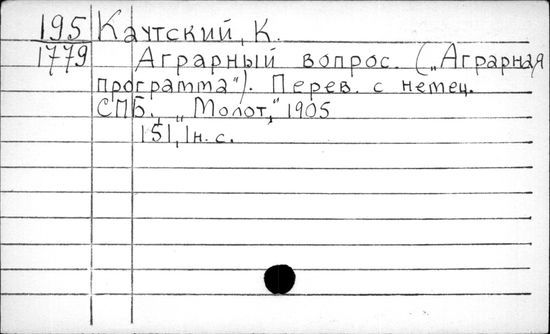 195 Каутский, К.
1779 Аграрный вопрос. („Аграрная
программа“). Перев. с немец.
СПБ., „Молот,“ 1905
151, 1н. с.